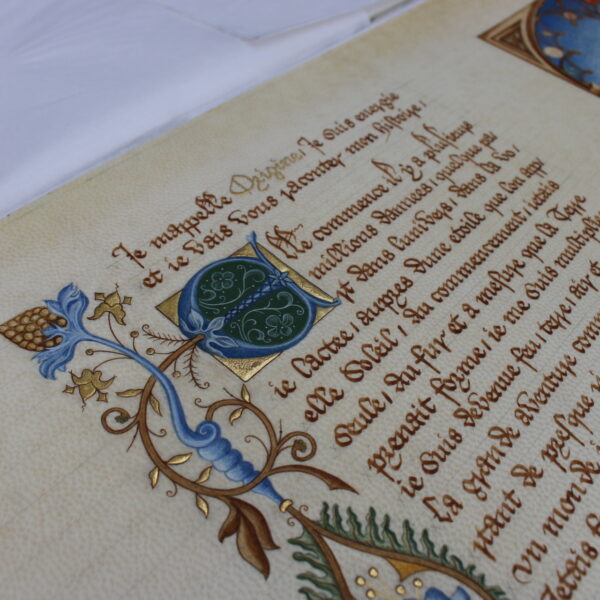 Je mappelle Origine, Je suis energie
et ie vais vous raconter mon histoire;
Elle commence il y a plusieurs
millions dannees, quelque pa
rt dans lunivers, dans la vo
ie lactee, aupres dune etoile que lon app
elle Soleil, au commencement, ietais
seule, au fur et a mesure que la Terre
prenoit forme, ie me suis multiplie
ie suis devenue feu, terre, air et
La grande aventure com
de presque
un monde
Jetais